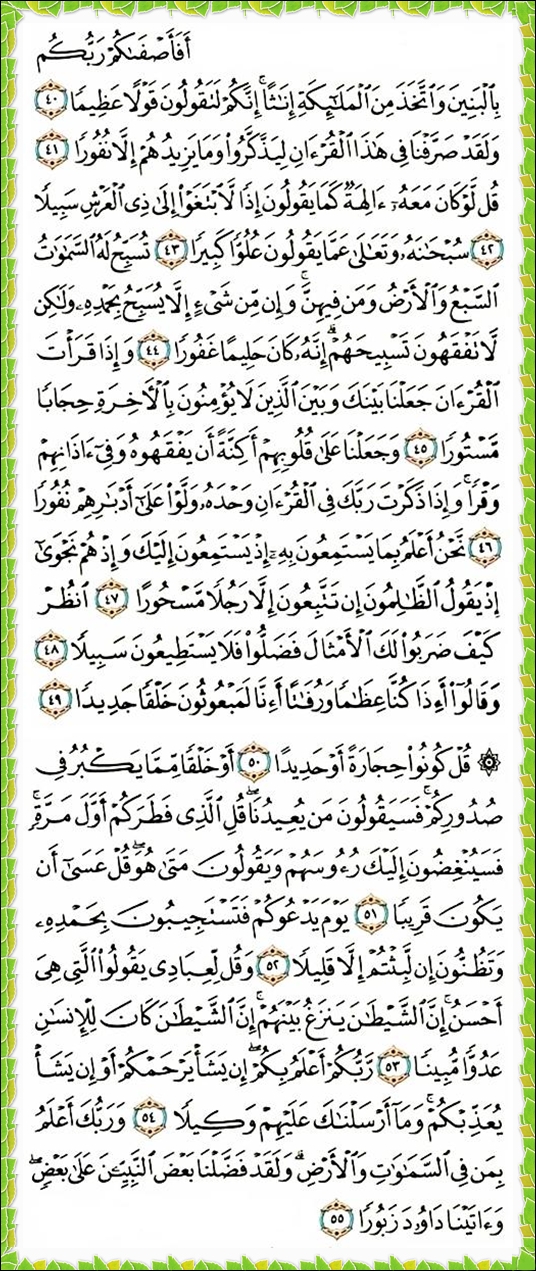 أَفَأَصْفَىٰكُمْ رَبُّكُم
بِٱلْبَنِينَ وَٱتَّخَذَ مِنَ ٱلْمَلَٰٓئِكَةِ إِنَٰثًا ۚ إِنَّكُمْ لَتَقُولُونَ قَوْلًا عَظِيمًا ٤٠
وَلَقَدْ صَرَّفْنَا فِى هَٰذَا ٱلْقُرْءَانِ لِيَذَّكَّرُوا۟ وَمَا يَزِيدُهُمْ إِلَّا نُفُورًا ٤١
قُل لَّوْ كَانَ مَعَهُۥٓ ءَالِهَةٌ كَمَا يَقُولُونَ إِذًا لَّٱبْتَغَوْا۟ إِلَىٰ ذِى ٱلْعَرْشِ سَبِيلًا
٤٢ سُبْحَٰنَهُۥ وَتَعَٰلَىٰ عَمَّا يَقُولُونَ عُلُوًّا كَبِيرًا ٤٣ تُسَبِّحُ لَهُ ٱلسَّمَٰوَٰتُ
ٱلسَّبْعُ وَٱلْأَرْضُ وَمَن فِيهِنَّ ۚ وَإِن مِّن شَىْءٍ إِلَّا يُسَبِّحُ بِحَمْدِهِۦ وَلَٰكِن
لَّا تَفْقَهُونَ تَسْبِيحَهُمْ ۗ إِنَّهُۥ كَانَ حَلِيمًا غَفُورًا ٤٤ وَإِذَا قَرَأْتَ
ٱلْقُرْءَانَ جَعَلْنَا بَيْنَكَ وَبَيْنَ ٱلَّذِينَ لَا يُؤْمِنُونَ بِٱلْءَاخِرَةِ حِجَابًا
مَّسْتُورًا ٤٥ وَجَعَلْنَا عَلَىٰ قُلُوبِهِمْ أَكِنَّةً أَن يَفْقَهُوهُ وَفِىٓ ءَاذَانِهِمْ
وَقْرًا ۚ وَإِذَا ذَكَرْتَ رَبَّكَ فِى ٱلْقُرْءَانِ وَحْدَهُۥ وَلَّوْا۟ عَلَىٰٓ أَدْبَٰرِهِمْ نُفُورًا
٤٦ نَّحْنُ أَعْلَمُ بِمَا يَسْتَمِعُونَ بِهِۦٓ إِذْ يَسْتَمِعُونَ إِلَيْكَ وَإِذْ هُمْ نَجْوَىٰٓ
إِذْ يَقُولُ ٱلظَّٰلِمُونَ إِن تَتَّبِعُونَ إِلَّا رَجُلًا مَّسْحُورًا ٤٧ ٱنظُرْ
كَيْفَ ضَرَبُوا۟ لَكَ ٱلْأَمْثَالَ فَضَلُّوا۟ فَلَا يَسْتَطِيعُونَ سَبِيلًا ٤٨
وَقَالُوٓا۟ أَءِذَا كُنَّا عِظَٰمًا وَرُفَٰتًا أَءِنَّا لَمَبْعُوثُونَ خَلْقًا جَدِيدًا ٤٩
۞ قُلْ كُونُوا۟ حِجَارَةً أَوْ حَدِيدًا ٥٠ أَوْ خَلْقًا مِّمَّا يَكْبُرُ فِى
صُدُورِكُمْ ۚ فَسَيَقُولُونَ مَن يُعِيدُنَا ۖ قُلِ ٱلَّذِى فَطَرَكُمْ أَوَّلَ مَرَّةٍ ۚ
فَسَيُنْغِضُونَ إِلَيْكَ رُءُوسَهُمْ وَيَقُولُونَ مَتَىٰ هُوَ ۖ قُلْ عَسَىٰٓ أَن
يَكُونَ قَرِيبًا ٥١ يَوْمَ يَدْعُوكُمْ فَتَسْتَجِيبُونَ بِحَمْدِهِۦ
وَتَظُنُّونَ إِن لَّبِثْتُمْ إِلَّا قَلِيلًا ٥٢ وَقُل لِّعِبَادِى يَقُولُوا۟ ٱلَّتِى هِىَ
أَحْسَنُ ۚ إِنَّ ٱلشَّيْطَٰنَ يَنزَغُ بَيْنَهُمْ ۚ إِنَّ ٱلشَّيْطَٰنَ كَانَ لِلْإِنسَٰنِ
عَدُوًّا مُّبِينًا ٥٣ رَّبُّكُمْ أَعْلَمُ بِكُمْ ۖ إِن يَشَأْ يَرْحَمْكُمْ أَوْ إِن يَشَأْ
يُعَذِّبْكُمْ ۚ وَمَآ أَرْسَلْنَٰكَ عَلَيْهِمْ وَكِيلًا ٥٤ وَرَبُّكَ أَعْلَمُ
بِمَن فِى ٱلسَّمَٰوَٰتِ وَٱلْأَرْضِ ۗ وَلَقَدْ فَضَّلْنَا بَعْضَ ٱلنَّبِيِّـۧنَ عَلَىٰ بَعْضٍ ۖ
وَءَاتَيْنَا دَاوُۥدَ زَبُورًا ٥٥